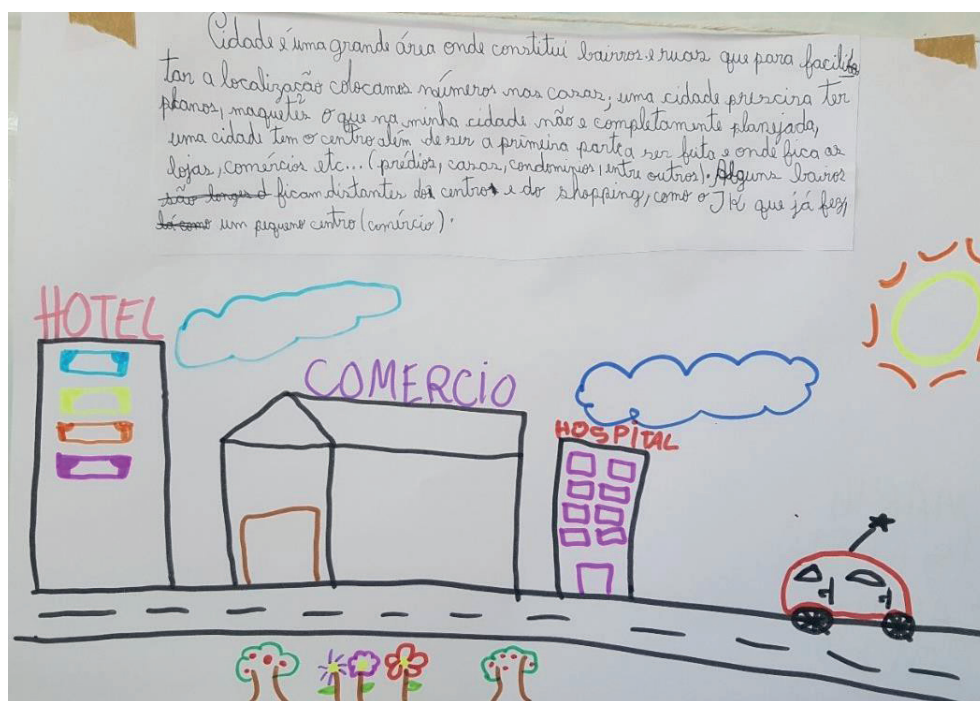 Cidade é uma grande área onde constitui bairros e ruas que para facili
tar a localização colocamos números nas casas, uma cidade prescisa ter
planos, maquetes o que na minha cidade não e completamente planejada,
uma cidade tem o centro além de ser a primeira parte a ser feita e onde fica as
lojas, comércios etc... (prédios, casas, condominios, entre outros). Alguns bairos
ficam distantes do centro e do shopping, como o JK que já fez,
um pequeno centro (comércio).
HOTEL
COMERCIO
HOSPITAL